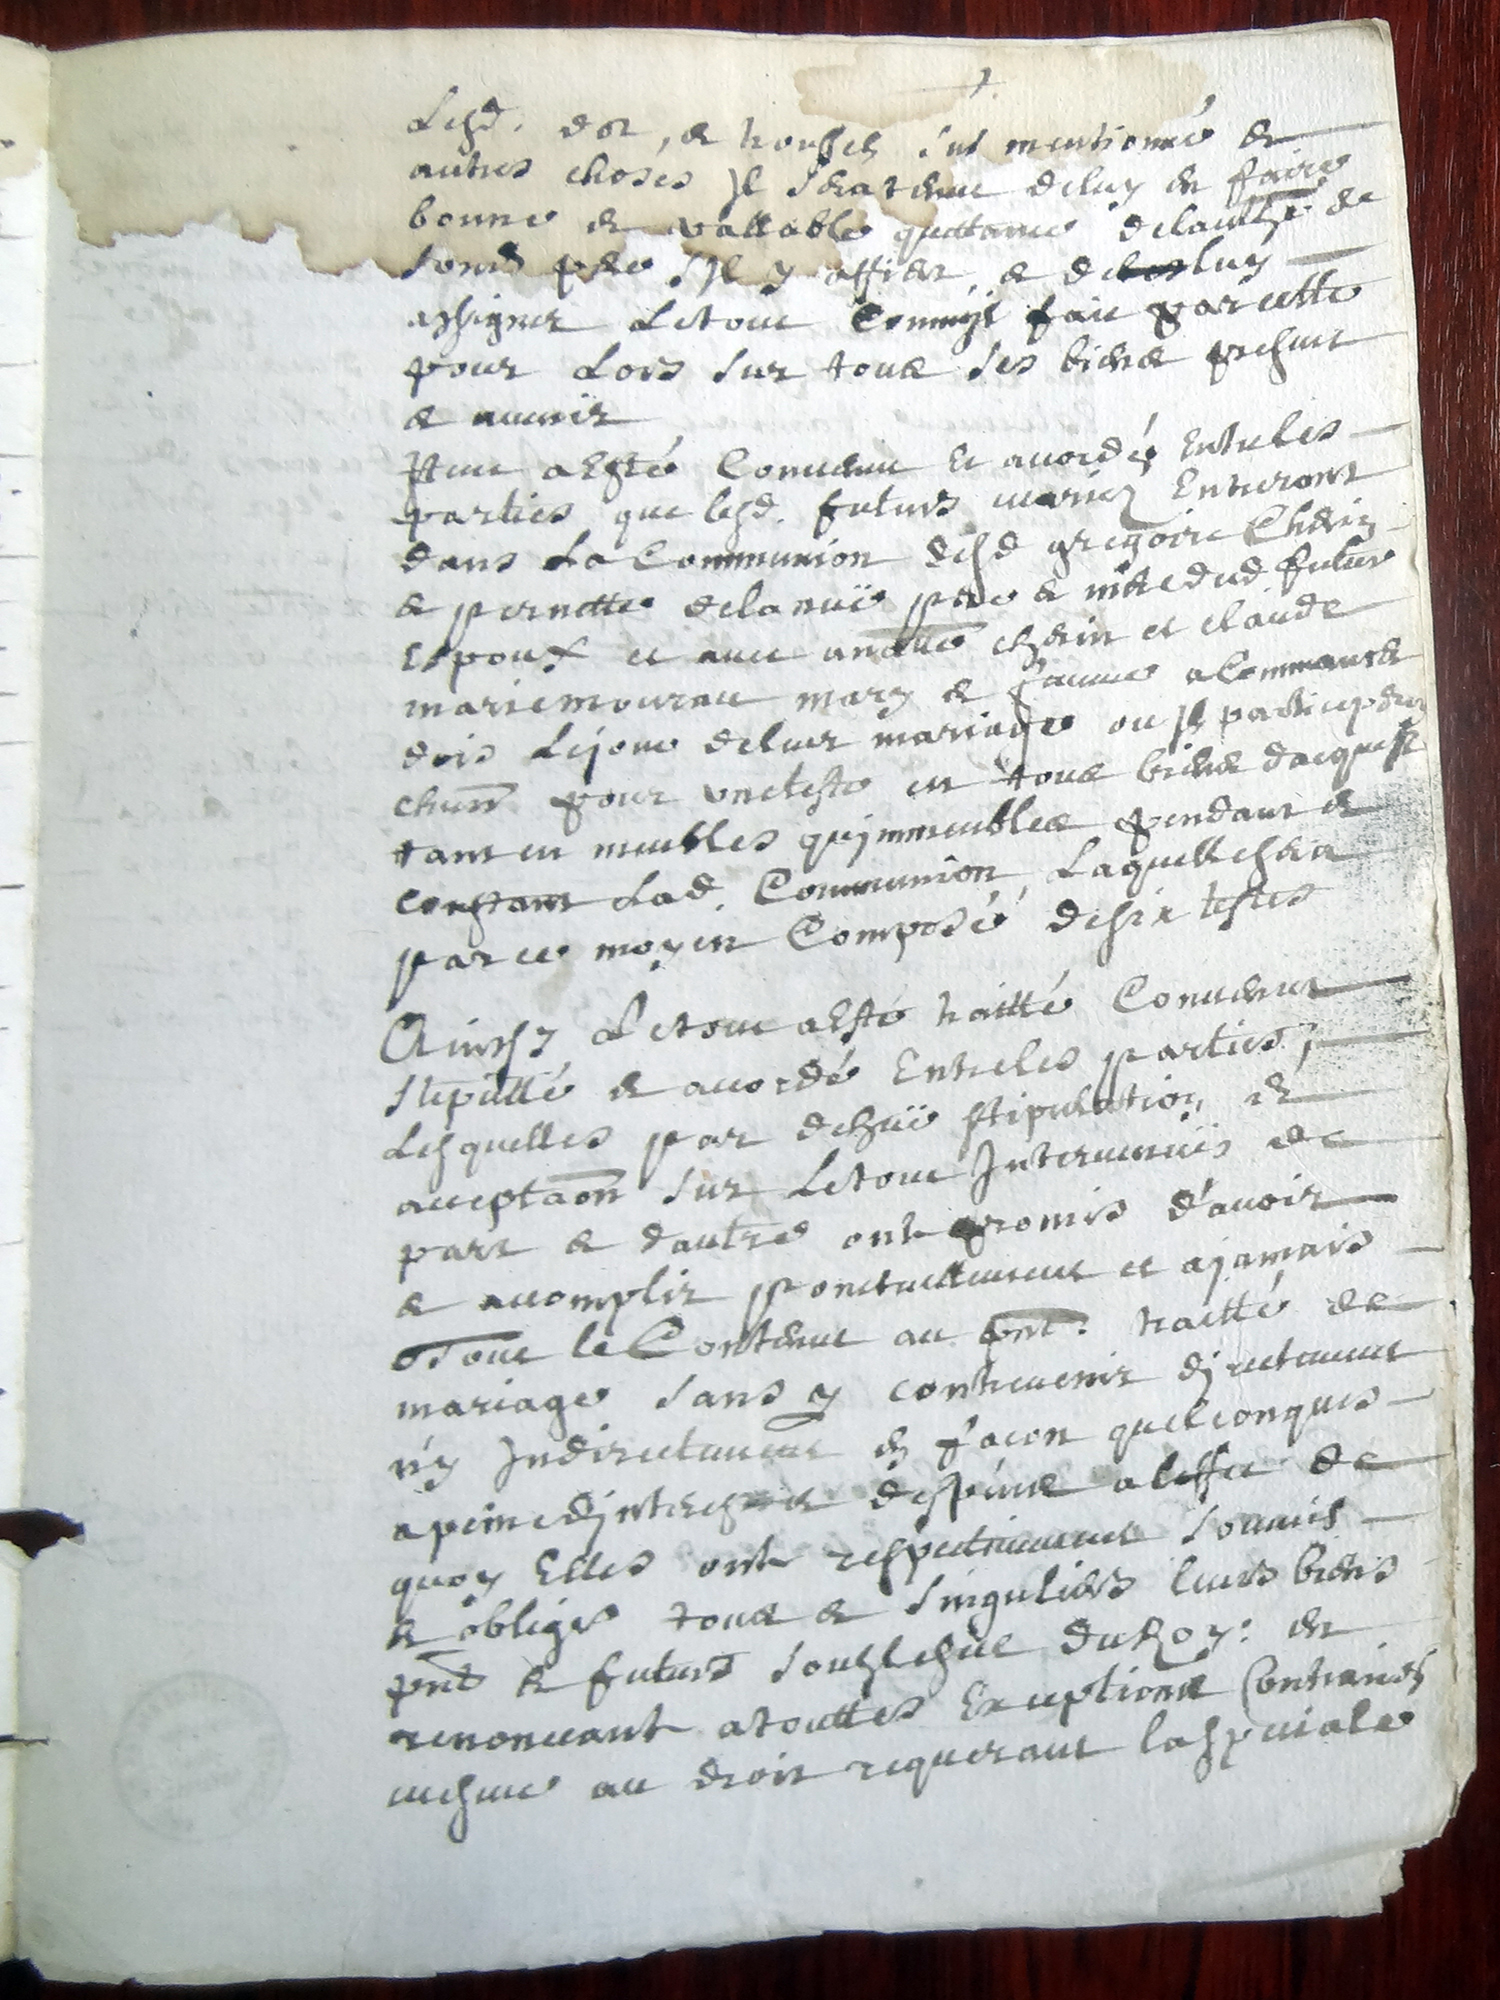 Lesd. dot, & troussel sus mentioné &
autres choses Il sera tenue deluy en faire
bonne & vallable quittance delauthé de
sond père s'Il y affiert, & de luy
assigner Letout Comm'Il fait par cette
pour Lors sur tous ses biens present
& avenir
Item a Esté Convenu Et acordéz Entreles
parties que lesd. futurs mariez Entreront
dans La Communion desd gregoire Chdin
& pernette delanuï père & mère dud futur
Espoux et avec Chdin et claude
marie moureau mary & fame a Commancer
dois Lejour deleur mariage ou Ils participeront
chun pour uneteste en tous biens dacquest
tant en meubles qu'immeubles pendant &
constant Lad. Communion, Laquelle sera
parce moyen Composé desix testes
Ainsy Letout aEsté traitté Convenu
stipullé & acordé Entreles parties,
Lesquelles par deheuë stipulation &
acceptaon sur Letout Intervenuës de
part & dautre ont promis d'avoir
& acomplir ponctuellement et ajamais
Tout le Contenu au pnt. traitté de
mariage sans y contrevenir directement
n'y Indirectement en façon quelconques
apeine d'interest & despens aleffet de
quoy Elles ont respectivement soumis
& obligé tous & singuliers leurs biens
pnt & futurs soubslescel duRoy: en
renoncant atouttes Exceptions Contraires
mesme au droit requerant laspeciale